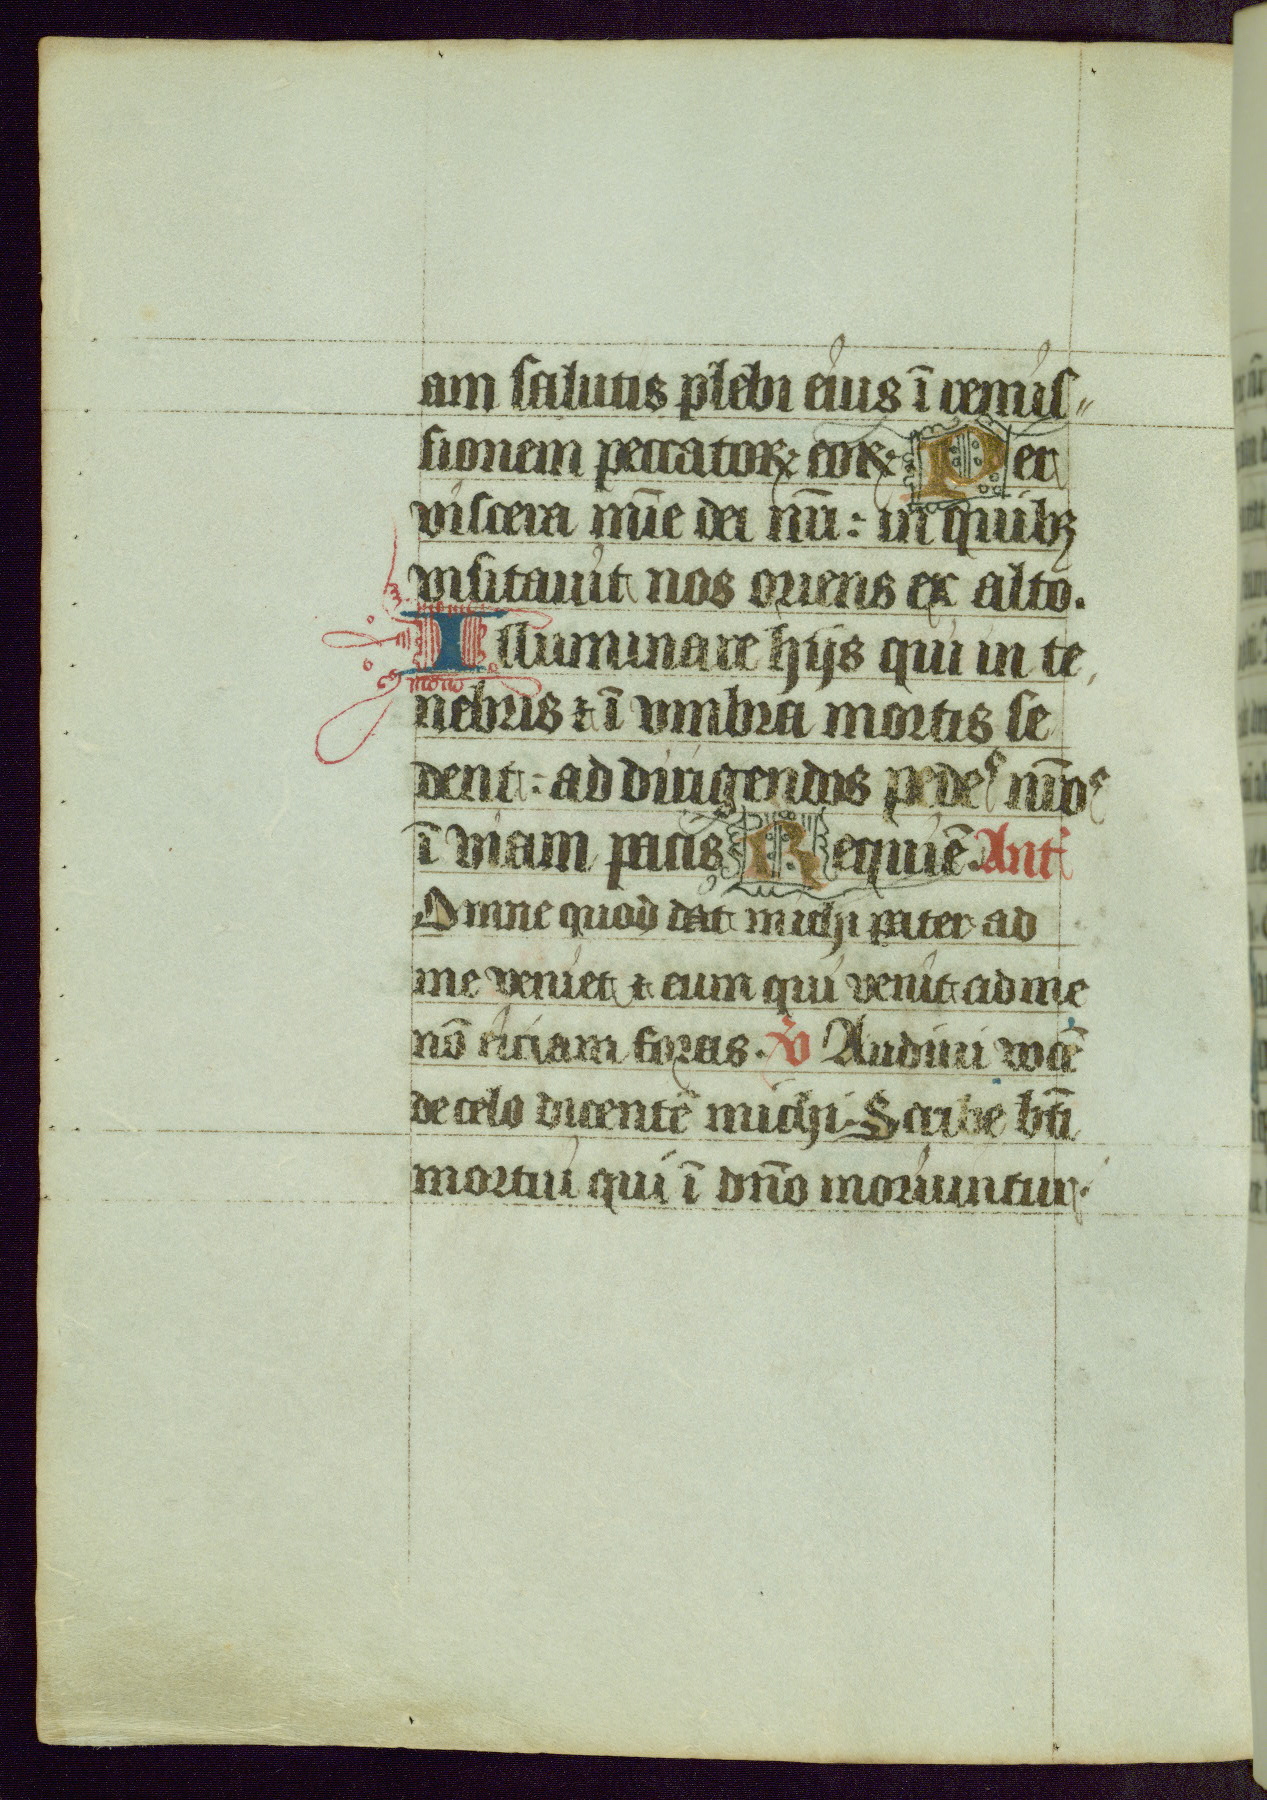 am salutis plebi eius ī remis„
sionem peccatoꝝ eoꝝ Per
viscera mīe dei nr̄i : in quibꝫ
visitauit nos oriens ex alto.
Illuminare hijs qui in te,
nebris ⁊ ī vmbra mortis se
dent : ad dirigendos pedes nr̄os
ī viam pacis Requiē. Ant
Omne quod dat michi pater ad
me veniet ⁊ eum qui venit ad me
nō eiciam foras. ℣ Audiui vocē
de celo dicentē michi. Scribe bt̄i
mortui qui ī dn̄o moriuntur.